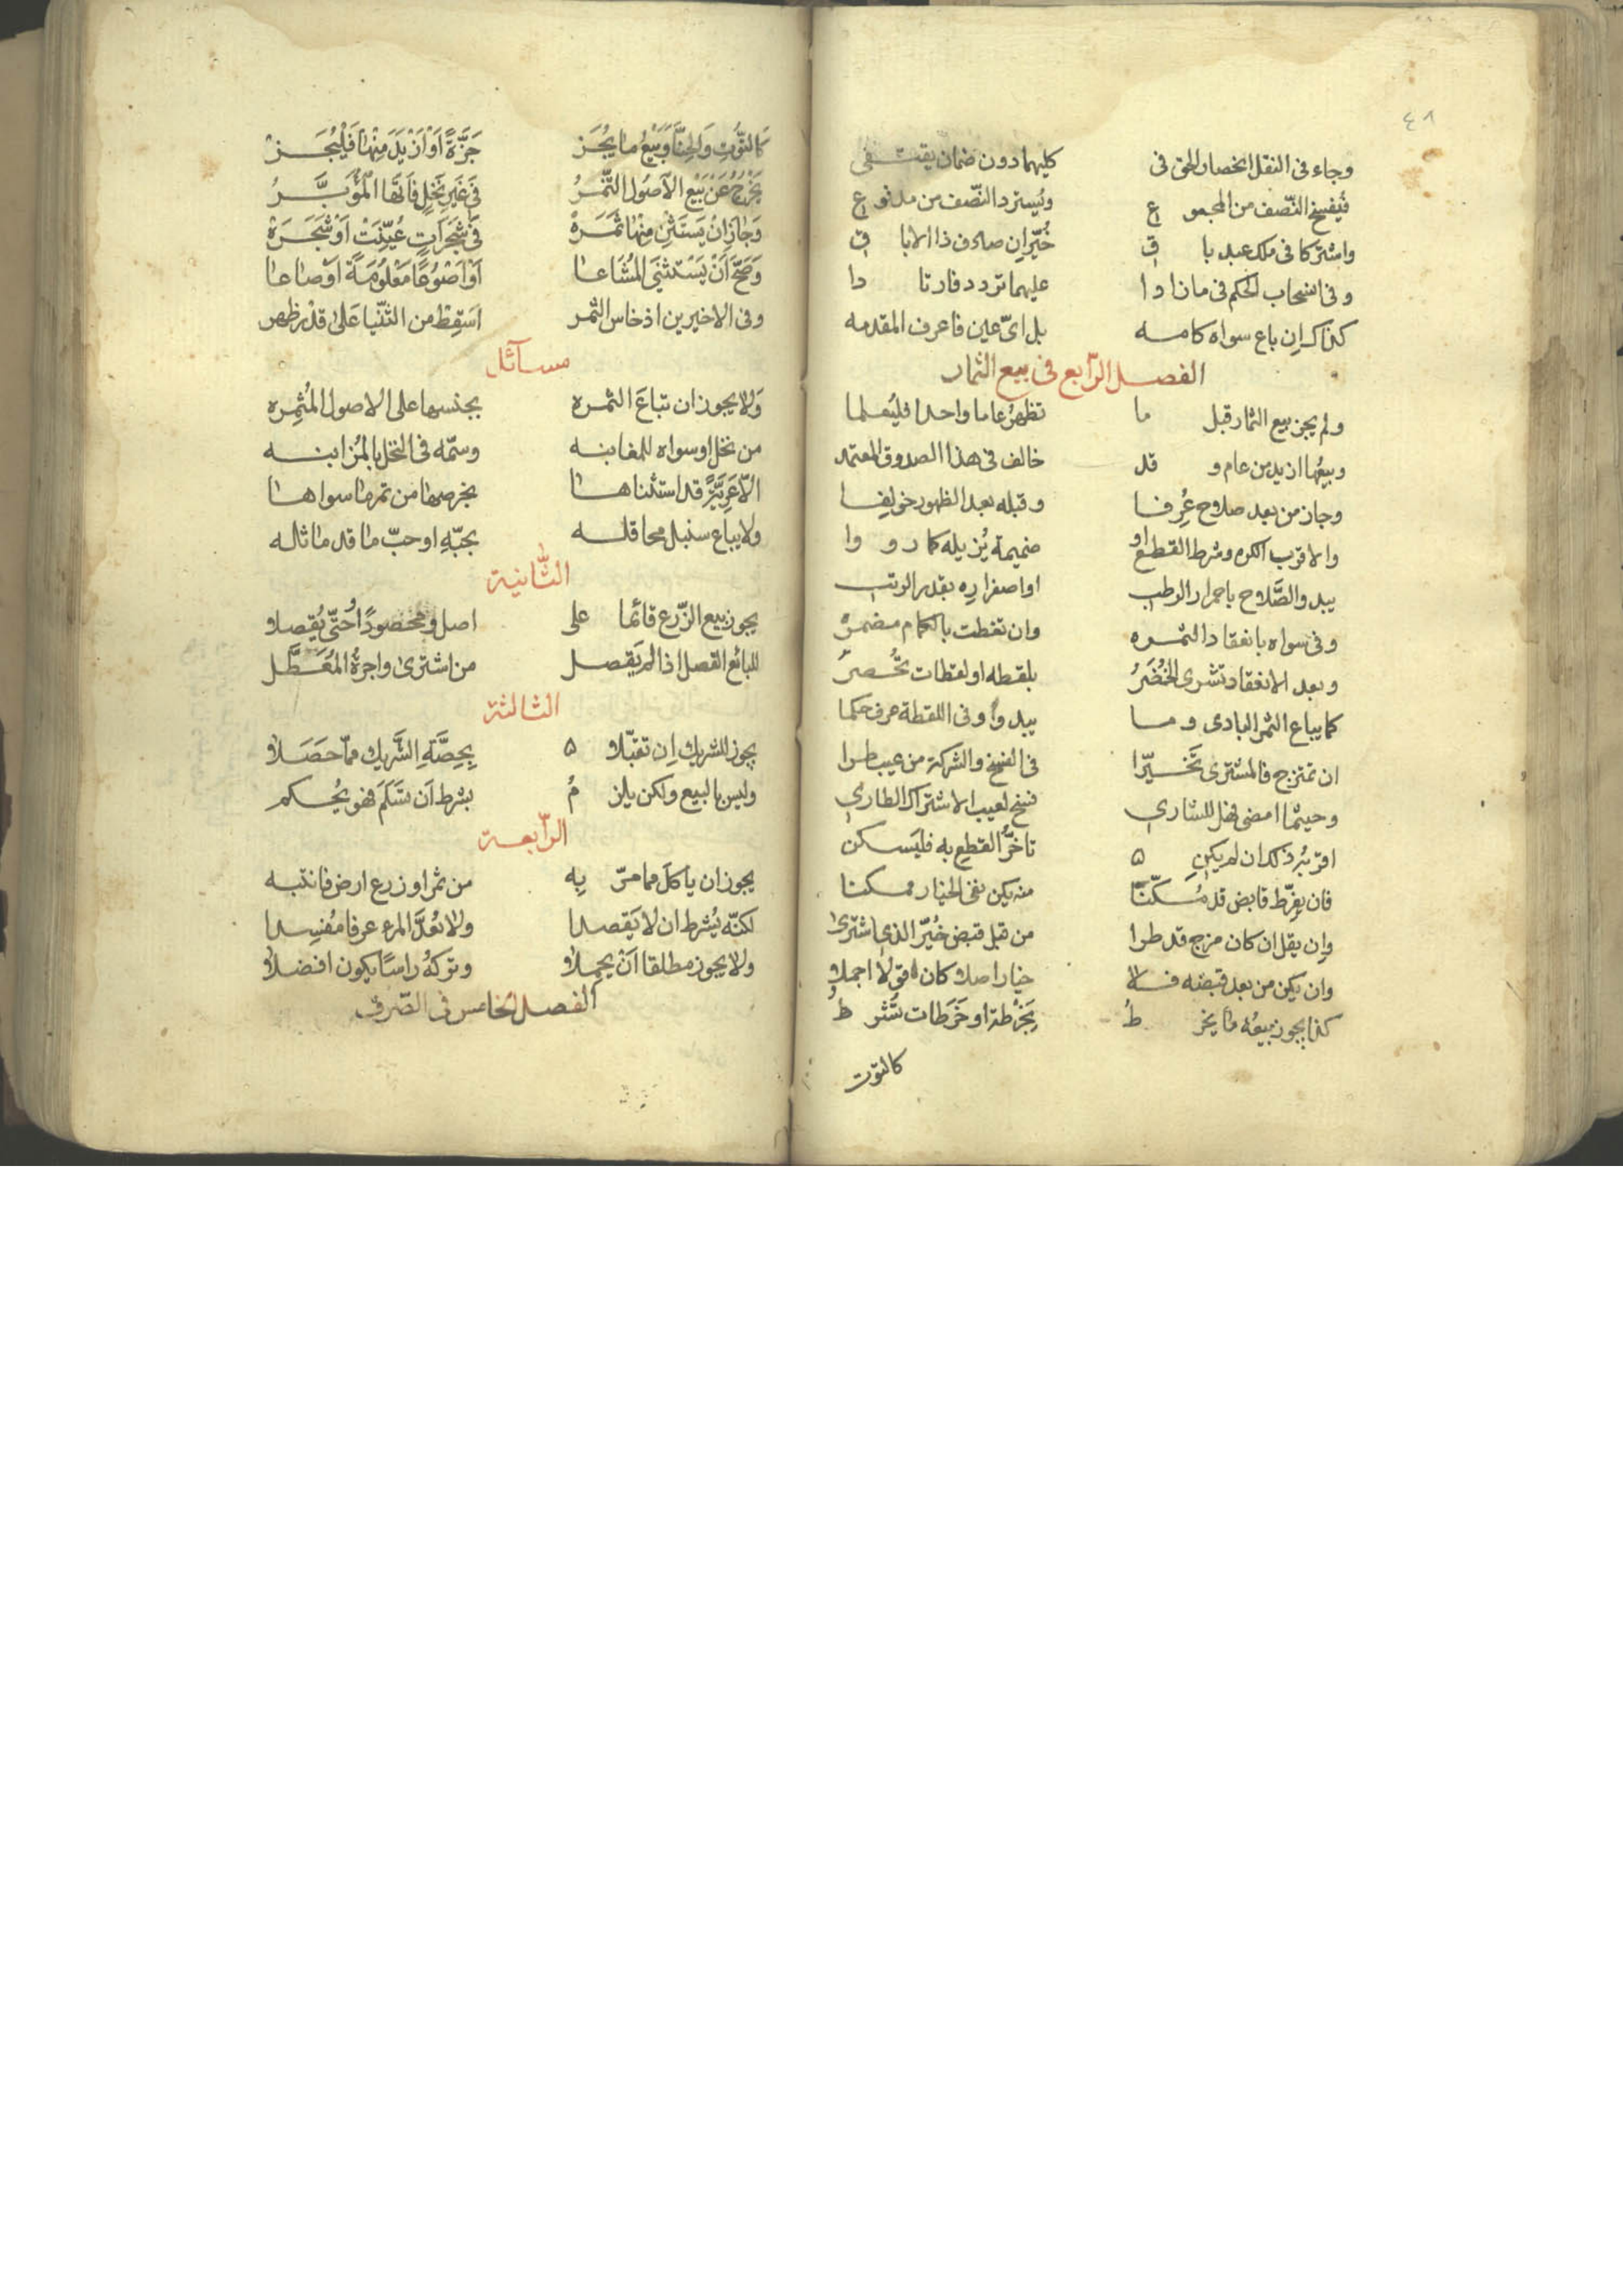 ٤٨
وجاء فى النقل انحصار الحق فى كليهما دون ضمان يقتفى
فيفسخ النّصف من المجموع ويُسترد النّصف من مدفوع
واشتركا فى ملك عبد باق خُيّران صادف ذا الاباق
وفى انسحاب الحكم فى ما زادا عليهما تردد فارتادا
كذاك ان باع سواه كامه بل اىّ عين فاعرف المقدمه
الفصل الرّابع فى بيع الثمار
ولم يجز بيع الثمار قبل ما تظهرُ عاما واحدا فليُعلما
وبيعُها ازيد من عام وقد خالف فى هذا الصدوق المعتمد
وجاز من بعد صلاح عُرِفا وقبله بعد الظهور خولفا
والاقرب الكره وشرط القطع او ضميمة يُزيله كما رووا
يبدو الصَّلاح باحمرار الرطب او اصفراره بقدر الرتب
وفى سواه بانعقاد الثمره وان تغطت بالكمام مضمرة
وبعد الانعقاد تشرى الخُضَرُ بلقطه او لقطات تُحصرُ
كما يباع الثمر البادى وما يبدو وفى اللقطة عرف حكما
ان تمتزج فالمشترى تخيّرا فى الفسخ والشركة من عيب طرا
وحيثما امضى فهل للشارى فسخ لعيب الاشتراك الطارى
اقربُه ذلك ان لم يكن تاخُّر القطع به فليسكن
فان يفرّط قابض قد مُكّنا منه يكن نفى الخيار ممكنا
وان يقل ان كان مزج قد طرا من قبل قبض خُيّر الذى اشترى
وان يكن من بعد قبضه فلا خيار اصلا كان قولا اجملا
كذا يجوز بيعُه ما يخرط بخرطة او خَرَطات تشرط
كالتوت
كَالتّوتِ وَالحِنّاَ وَبَيْعُ ما يُجَز جَزَّةً اَوْ اَزْيَدَ مِنْها فَلْيُجَز
يَخْرُجُ عَنْ بَيْعِ الاُصُول الثّمَرُ فى غَيرِ نَخلٍ فَاتَها المُؤَبَّرُ
وَجَازَ اِنْ يَسْتَثْنِ مِنْها ثَمَرَهْ فى شَجَراتٍ عُيّنَتْ اَوْ شَجَرَهْ
وَصَحَّ اَنْ يَسْتثنَى المُشَاعا اَوْ اَصْوُعًا مَعْلُومَةً اَوْ صاعا
وفى الاخيرين اذ خاس الثمر اسقِط من الثنيا على قدر ظهر
مسآئل
وَلا يجوز ان تباعَ الثمره بجنسها على الاصول المُثمِره
من نخل او سواه للمغابنه وسمّه فى النخل بالمُزابنه
الاّ عَرِيَّةً قد استثناها بخرصها من تمر ما سواها
ولا يباع سنبل محاقله بحبّهِ او حبّ ما قد ماثله
الثّانية
يجوز بيع الزّرع قائما على اصل ومحصودًا وحتّى يُقصلا
للبائع القصل اذا لم يقصل من اشترى واجرةُ المُعَطَّل
الثالثة
يجوز للشريك ان تقبّلا بِحِصَّةِ الشَّريك ممّا حَصَلا
وليس بالبيع ولكن يلزمُ بشرط اَن تَسْلَمَ فهو يُحكم
الرّابعة
يجوز ان ياكل مما مرّ بِه من ثمر او زرع ارض فانتبه
لكنّه يُشرط ان لا يَقصدا ولا يُعَدَّ المرء عرفا مُفسِدا
ولا يجوز مطلقا اَنْ يحملا وتركهُ راسًا يكون افضلا
الفصل الخامس فى الصّرف